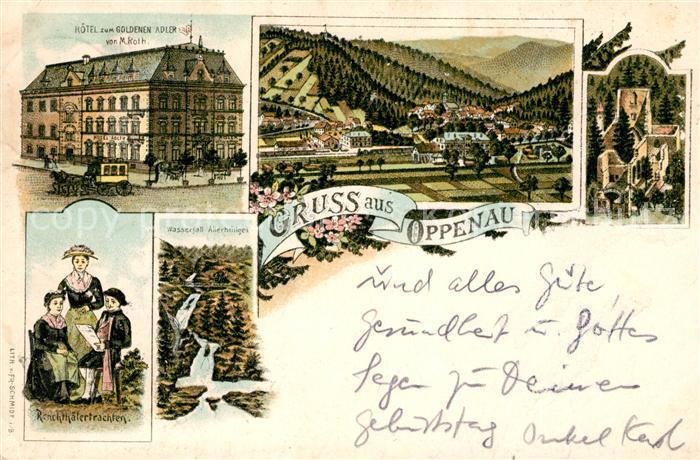 HÔTEL ZUM GOLDENEN ADLER
von M. Roth.
GRUSS aus OPPENAU
Wasserfall Allerheiligen
Renchthälertrachten.
LITH v. FR. SCHMIDT
und alles Gute,
Gesundheit u. Gottes
Segen zu Deinem
Geburtstag Onkel Karl